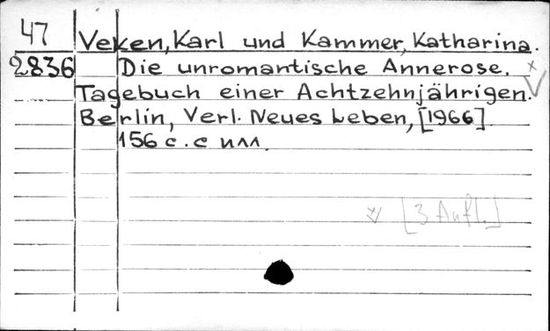 47 Veken, Karl und Kammer, Katharina.
2836 Die unromantische Annerose.
Tagebuch einer Achtzehnjährigen.
Berlin, Verl. Neues Leben, [1966]
156 с. с илл.
[3 Aufl.]